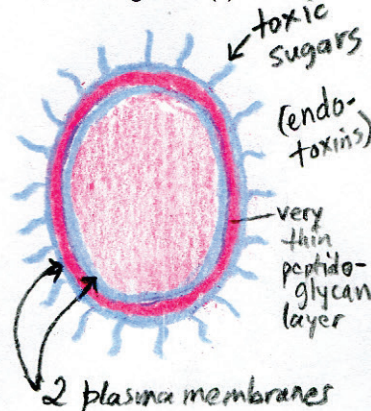 toxic
sugars
(endo-
toxins)
very
thin
peptido-
glycan
layer
2 plasma membranes